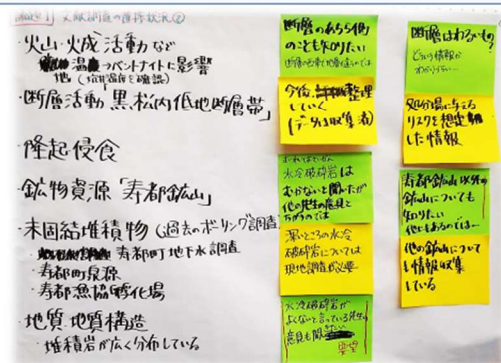 文献調査の進捗状況②
・火山・火成活動など
温 → ベントナイトに影響
地
・断層活動「黒松内低地断層帯」
・隆起侵食
・鉱物資源「寿都鉱山」
・未固結堆積物(過去のボーリング調査)
・寿都町地下水調査
・寿都町泉源
・寿都漁協孵化場
・地質・地質構造
・堆積岩が広く分布している
断層のあちら側
のことも知りたい
今後 整理
していく
(データは収集済)
水冷破砕岩は
むかないと聞いたが
他の先生の意見と
ちがうのでは
深いところの水冷
破砕岩については
現地調査が必要
水冷破砕岩が
よくないと言っている先生の
意見も聞きたい
要望
断層はわるいもの?
どういう情報が
わかりづらい…
処分場に与える
リスクを想定
した情報
寿都鉱山以外の
鉱山についても
知りたい
他にもあるのでは…
他の鉱山について
も情報収集
している